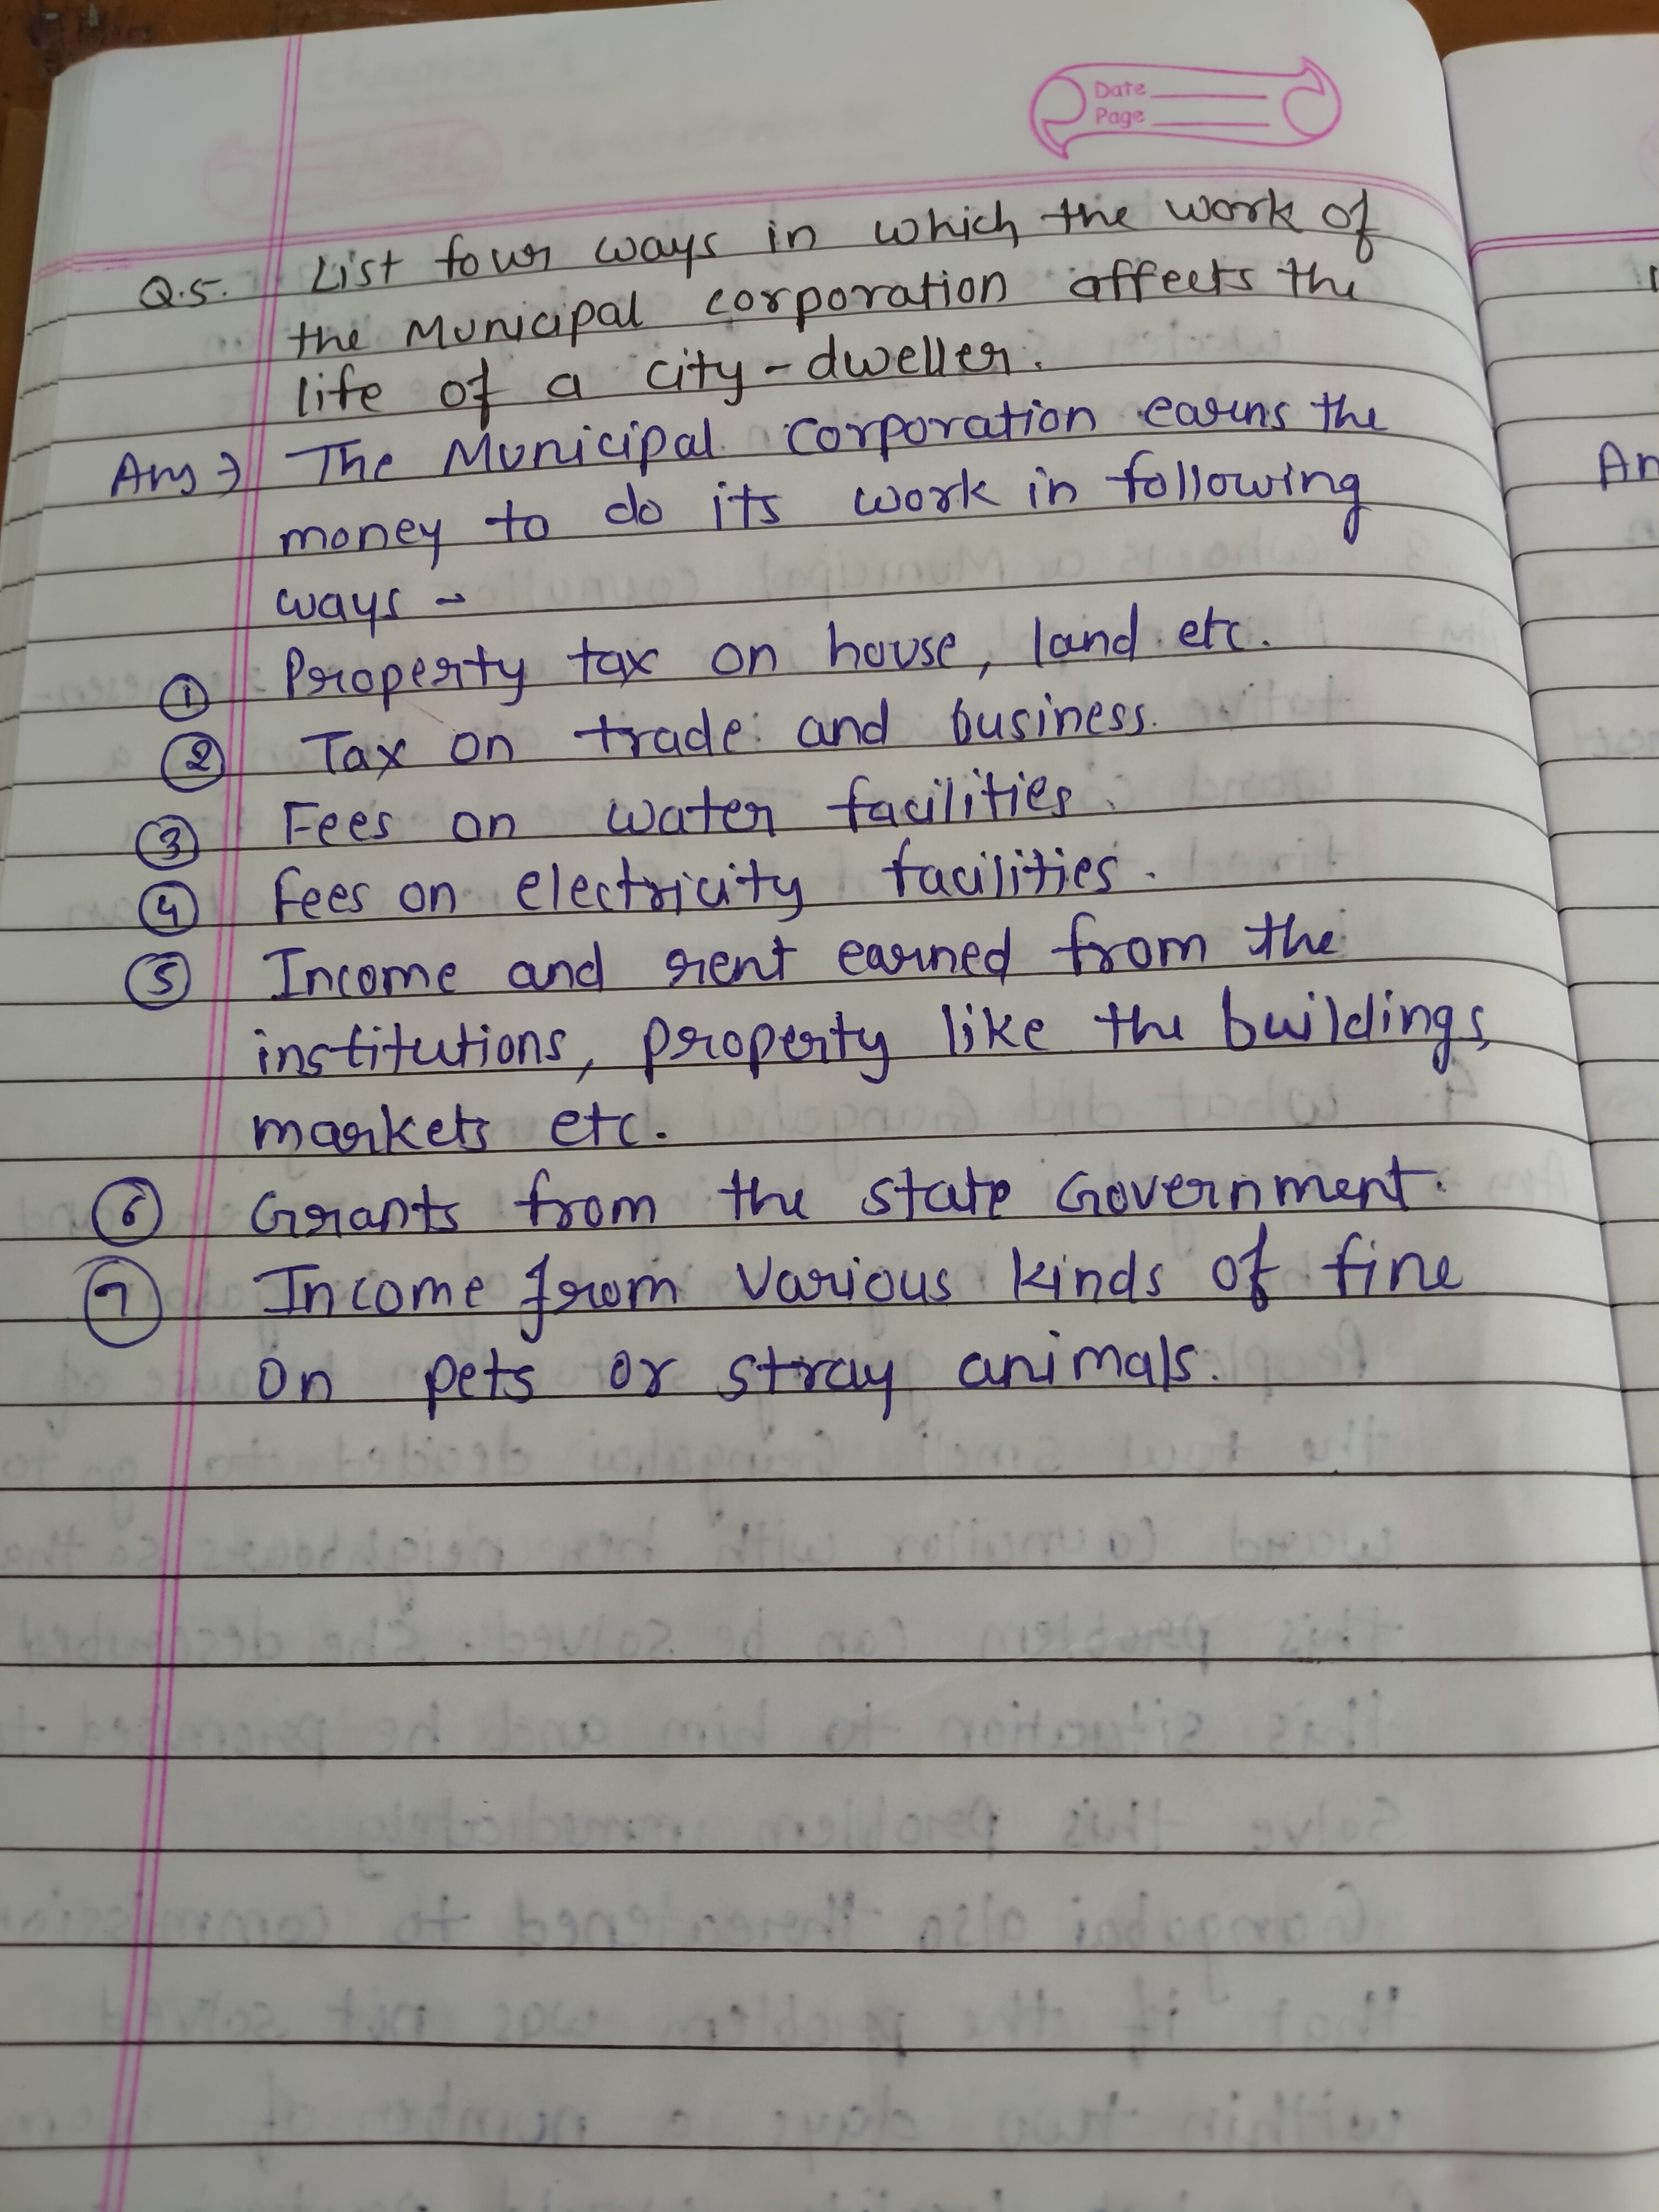 Date
Page
Q.5. List four ways in which the work of
the Municipal corporation affects the
life of a city-dweller.
Ans → The Municipal Corporation earns the
money to do its work in following
ways -
① Property tax on house, land etc.
② Tax on trade and business.
③ Fees on water facilities.
④ Fees on electricity facilities.
⑤ Income and rent earned from the
institutions, property like the buildings,
markets etc.
⑥ Grants from the state Government.
⑦ Income from various kinds of fine
on pets or stray animals.
An